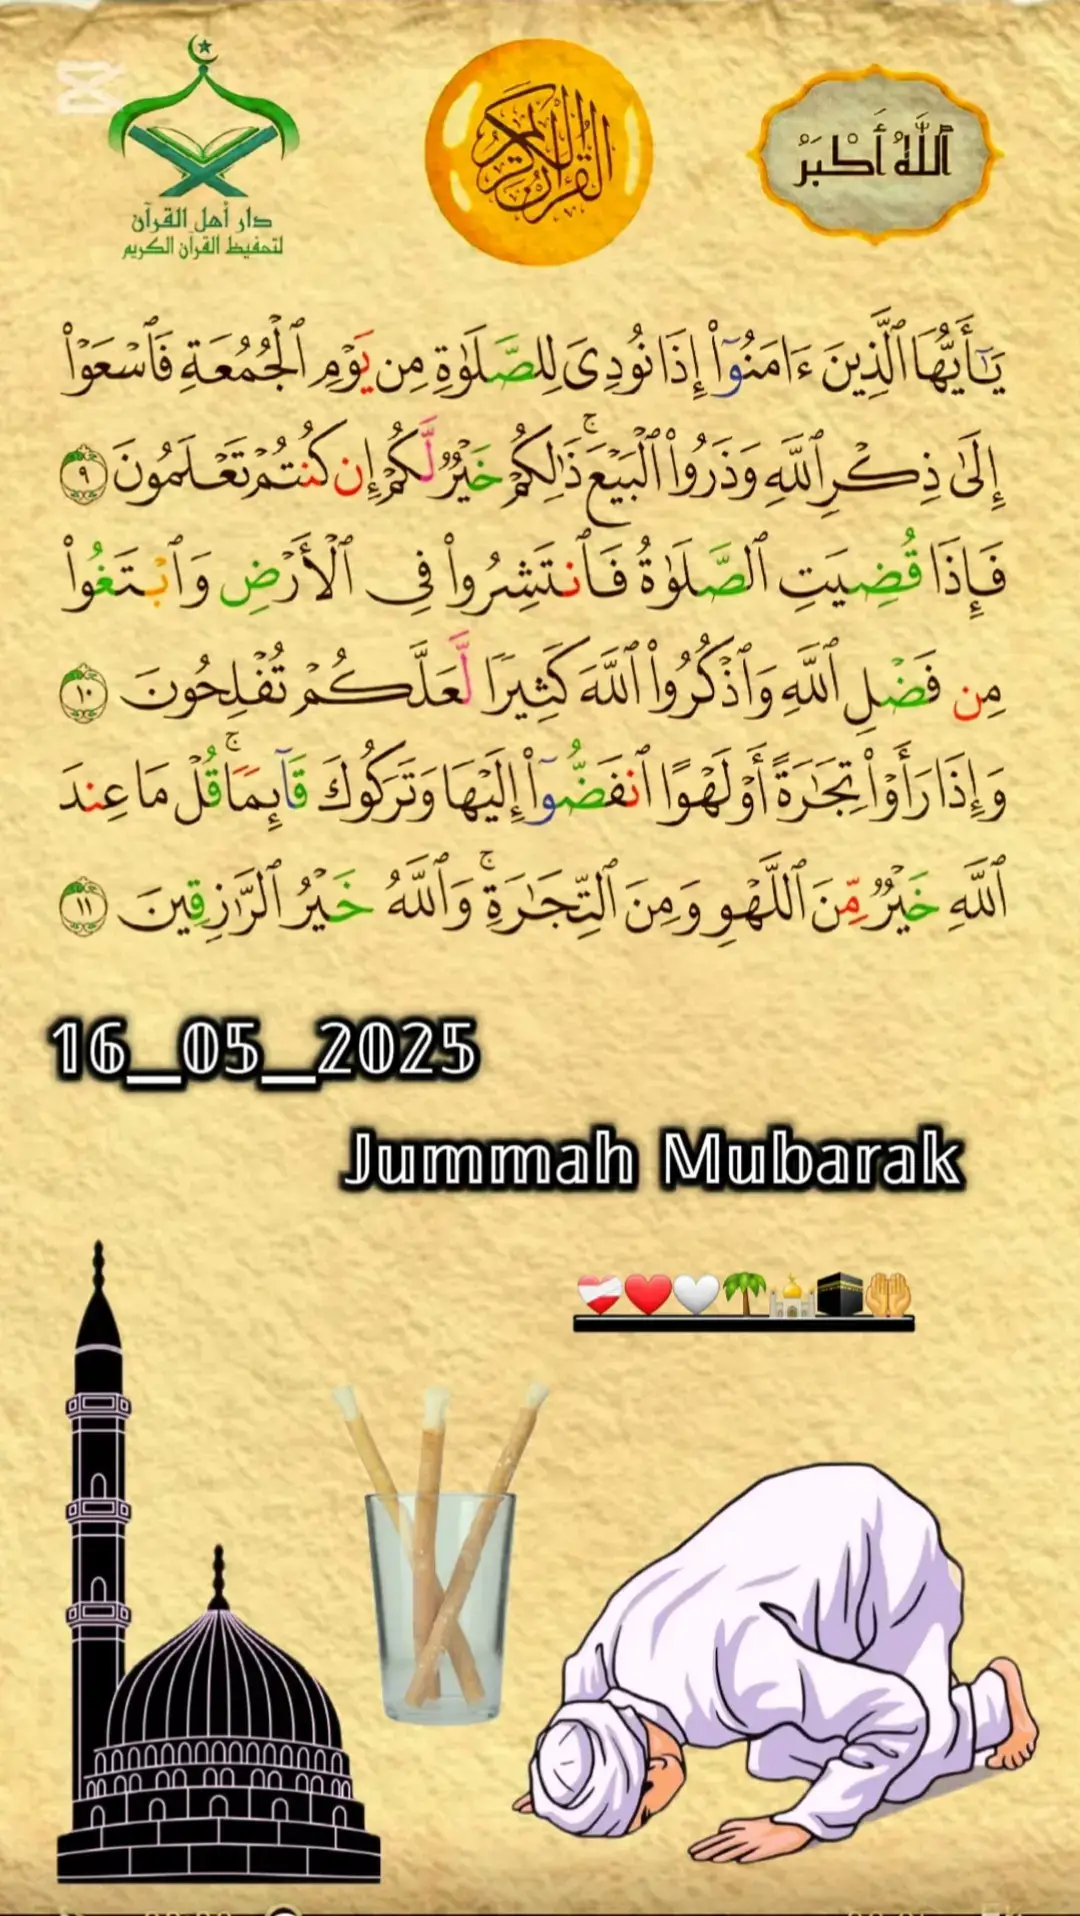 دار أهل القرآن
لتحفيظ القرآن الكريم
القرآن الكريم
ٱللَّهُ أَكْبَرُ
يَـٰٓأَيُّهَا ٱلَّذِينَ ءَامَنُوٓا۟ إِذَا نُودِىَ لِلصَّلَوٰةِ مِن يَوْمِ ٱلْجُمُعَةِ فَٱسْعَوْا۟
إِلَىٰ ذِكْرِ ٱللَّهِ وَذَرُوا۟ ٱلْبَيْعَ ۚ ذَٰلِكُمْ خَيْرٌ لَّكُمْ إِن كُنتُمْ تَعْلَمُونَ ٩
فَإِذَا قُضِيَتِ ٱلصَّلَوٰةُ فَٱنتَشِرُوا۟ فِى ٱلْأَرْضِ وَٱبْتَغُوا۟
مِن فَضْلِ ٱللَّهِ وَٱذْكُرُوا۟ ٱللَّهَ كَثِيرًا لَّعَلَّكُمْ تُفْلِحُونَ ١٠
وَإِذَا رَأَوْا۟ تِجَـٰرَةً أَوْ لَهْوًا ٱنفَضُّوٓا۟ إِلَيْهَا وَتَرَكُوكَ قَآئِمًا ۚ قُلْ مَا عِندَ
ٱللَّهِ خَيْرٌ مِّنَ ٱللَّهْوِ وَمِنَ ٱلتِّجَـٰرَةِ ۚ وَٱللَّهُ خَيْرُ ٱلرَّٰزِقِينَ ١١
16_05_2025
Jummah Mubarak